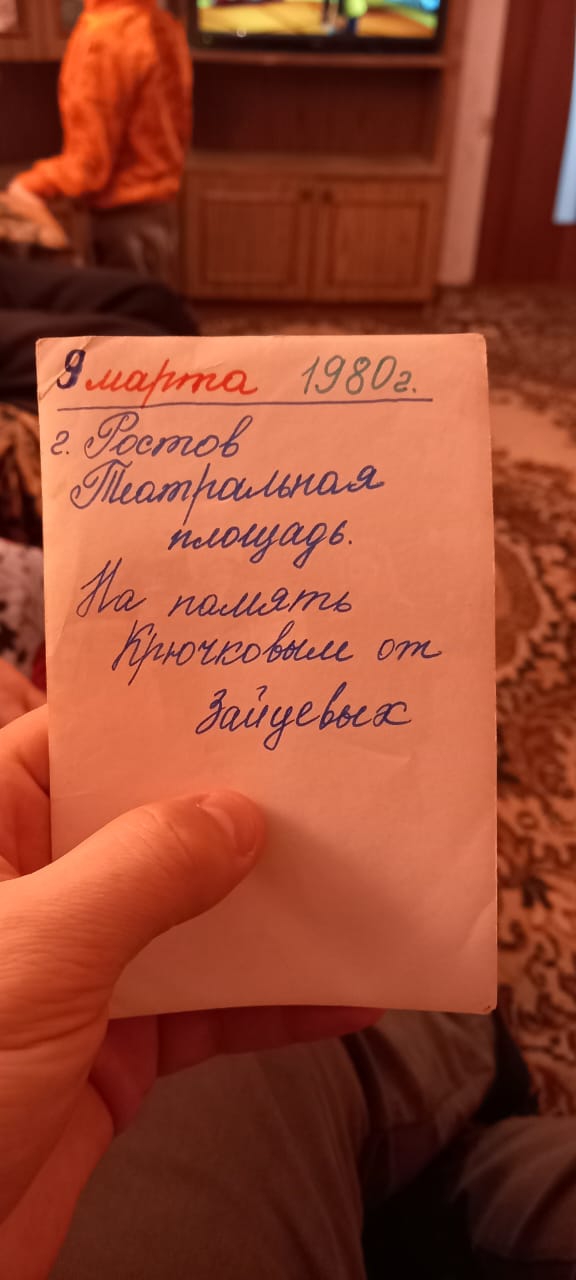 9 марта 1980г.
г. Ростов
Театральная
площадь.
На память
Крючковым от
Зайцевых